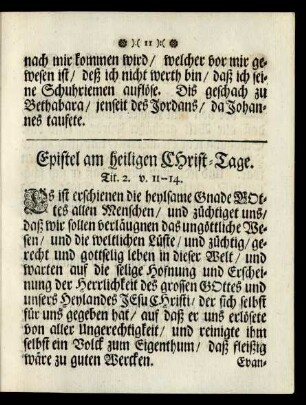 )( 11 )(
nach mir kommen wird / welcher vor mir ge-
wesen ist / deß ich nicht werth bin / daß ich sei-
ne Schuhriemen auflöse. Dis geschach zu
Bethabara / jenseit des Jordans / da Johan-
nes taufete.
Epistel am heiligen CHrist-Tage.
Tit. 2. v. 11-14.
Es ist erschienen die heylsame Gnade GOt-
tes allen Menschen / und züchtiget uns /
daß wir sollen verläugnen das ungöttliche We-
sen / und die weltlichen Lüste / und züchtig / ge-
recht und gottselig leben in dieser Welt / und
warten auf die selige Hofnung und Erschei-
nung der Herrlichkeit des grossen GOttes und
unsers Heylandes JEsu CHristi / der sich selbst
für uns gegeben hat / auf daß er uns erlösete
von aller Ungerechtigkeit / und reinigte ihm
selbst ein Volck zum Eigenthum / daß fleißig
wäre zu guten Wercken.
Evan-